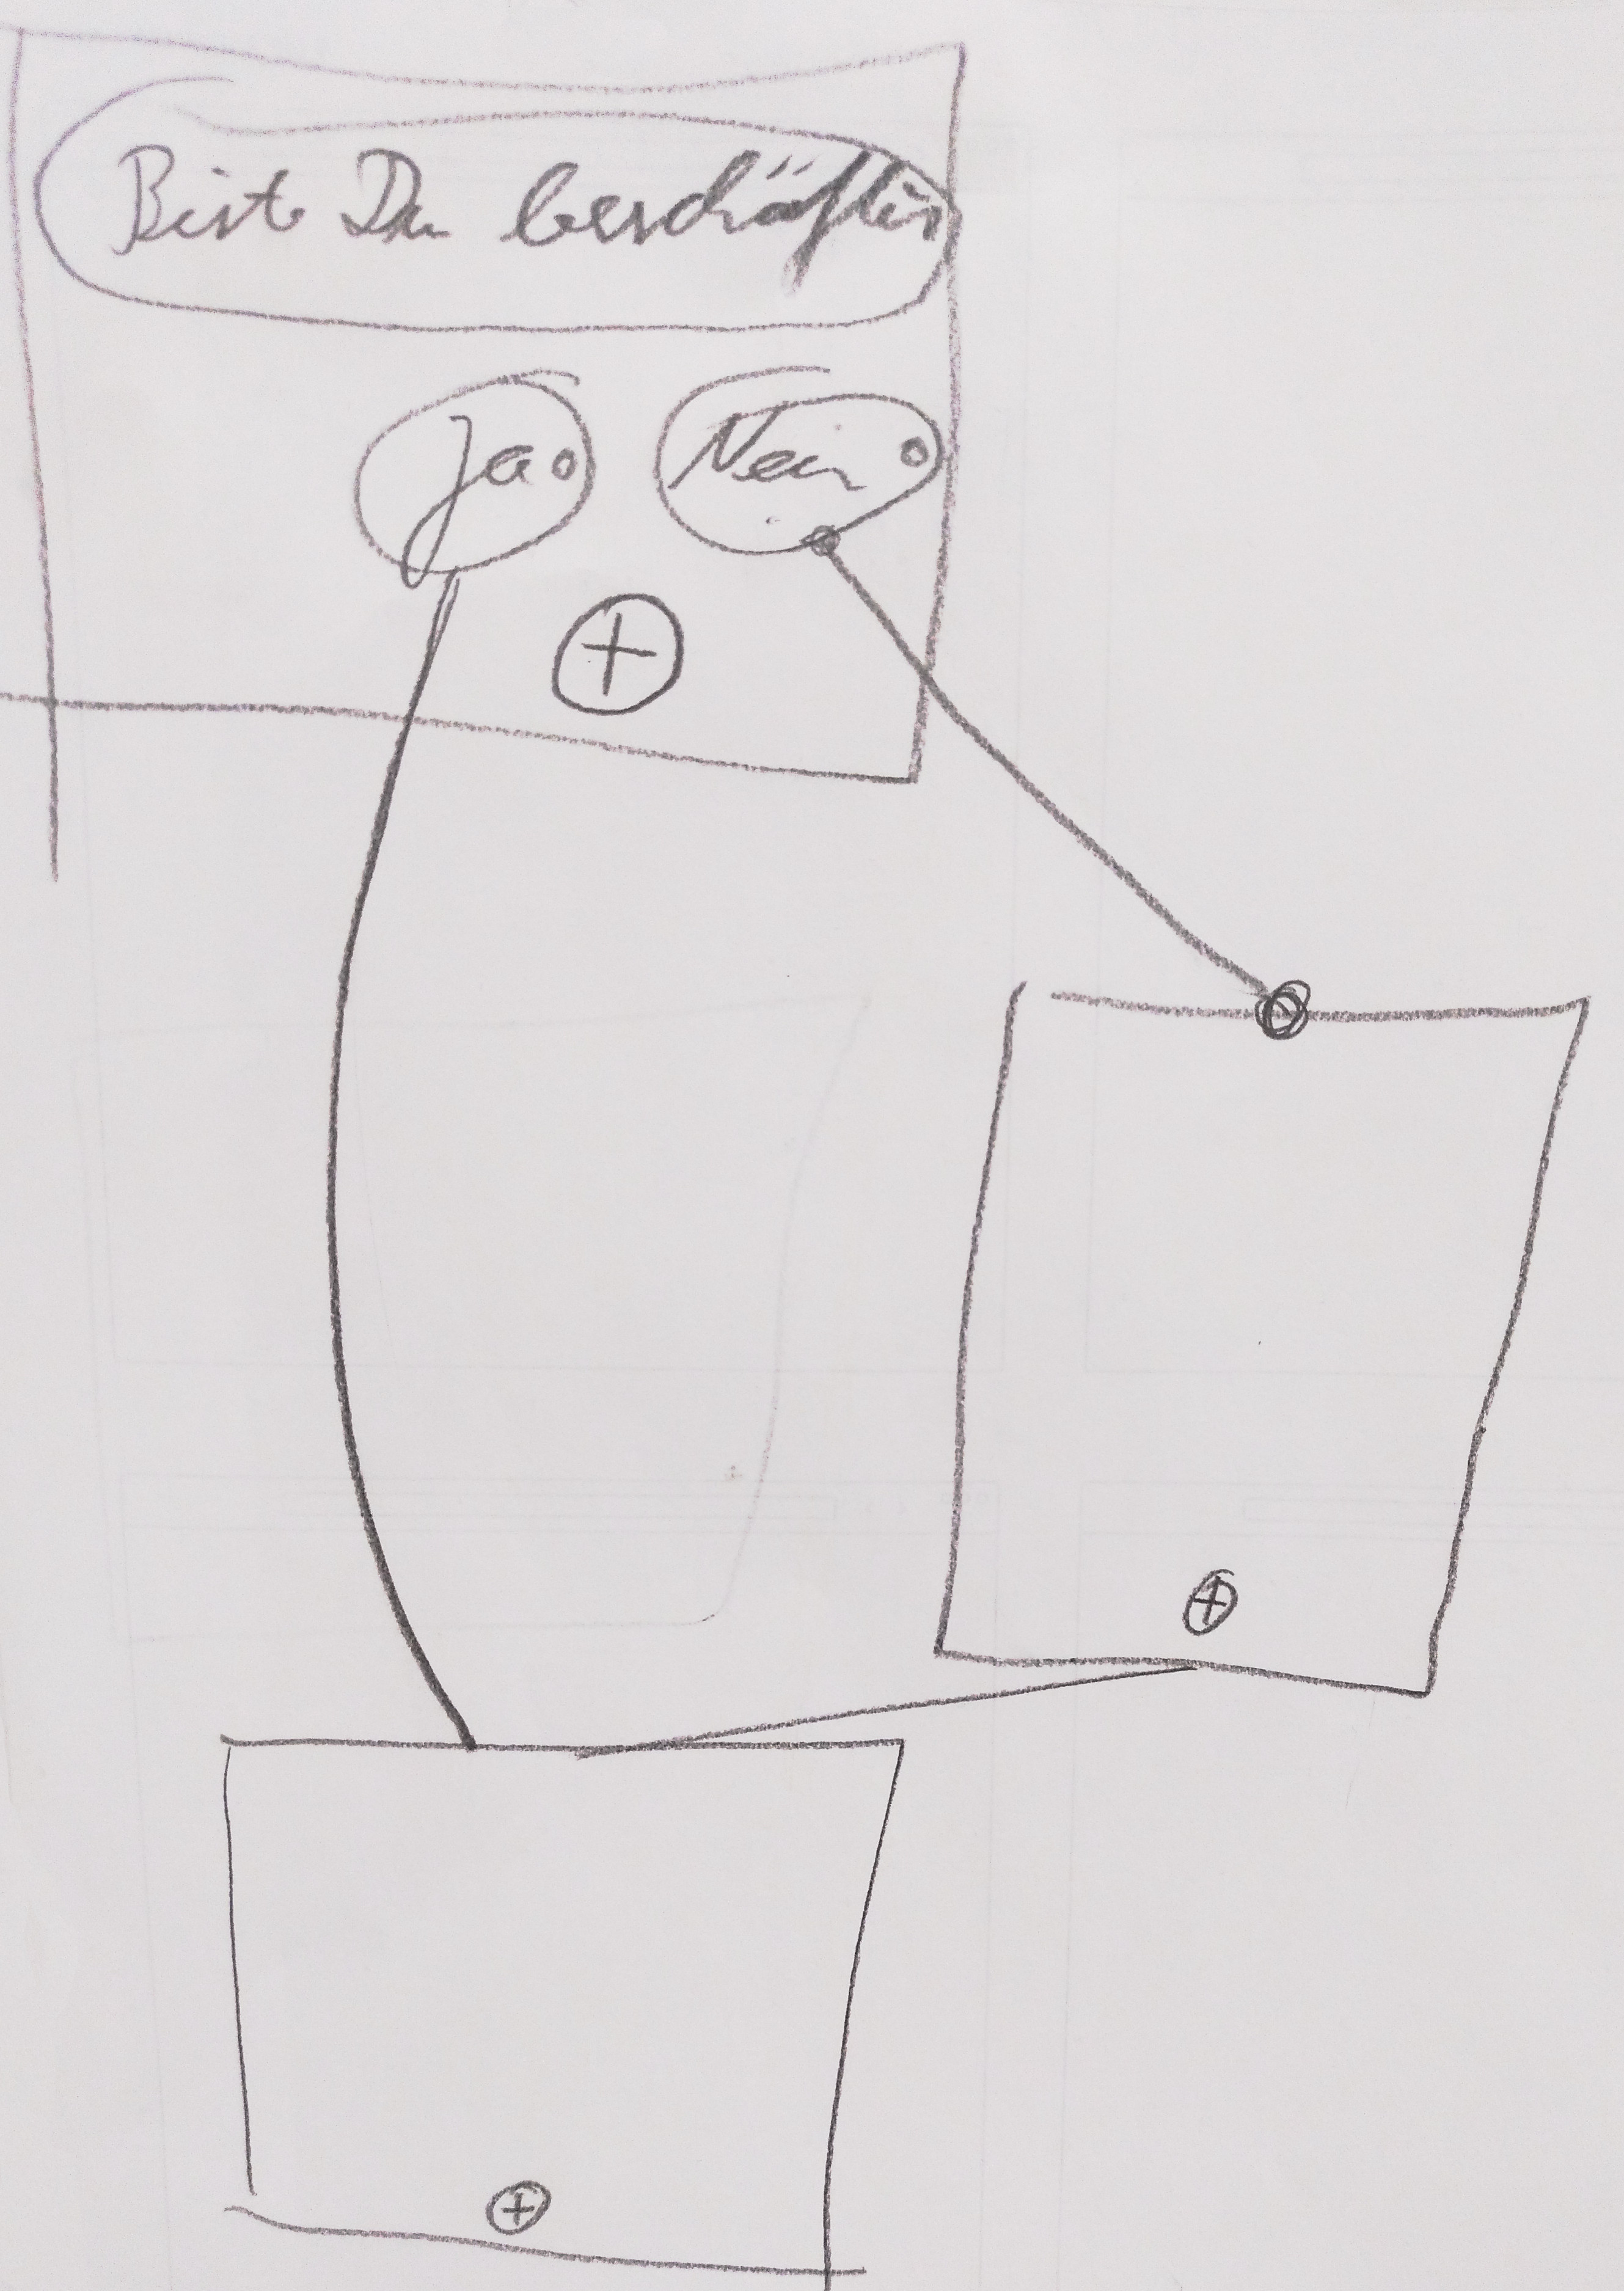 Bist Du beschäftig
Ja Nein
+
+
+